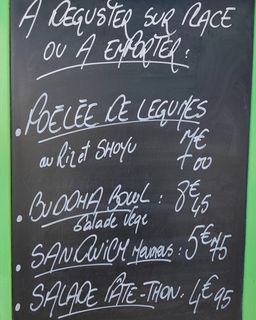 A DEGUSTER SUR PLACE
OU A EMPORTER :
. POÊLÉE DE LEGUMES
au Riz et SHOYU 7€00
. BUDDHA BOWL : 8€45
Salade Vege
. SANDWICH : 5€75
. SALADE PÂTE-THON : 4€95